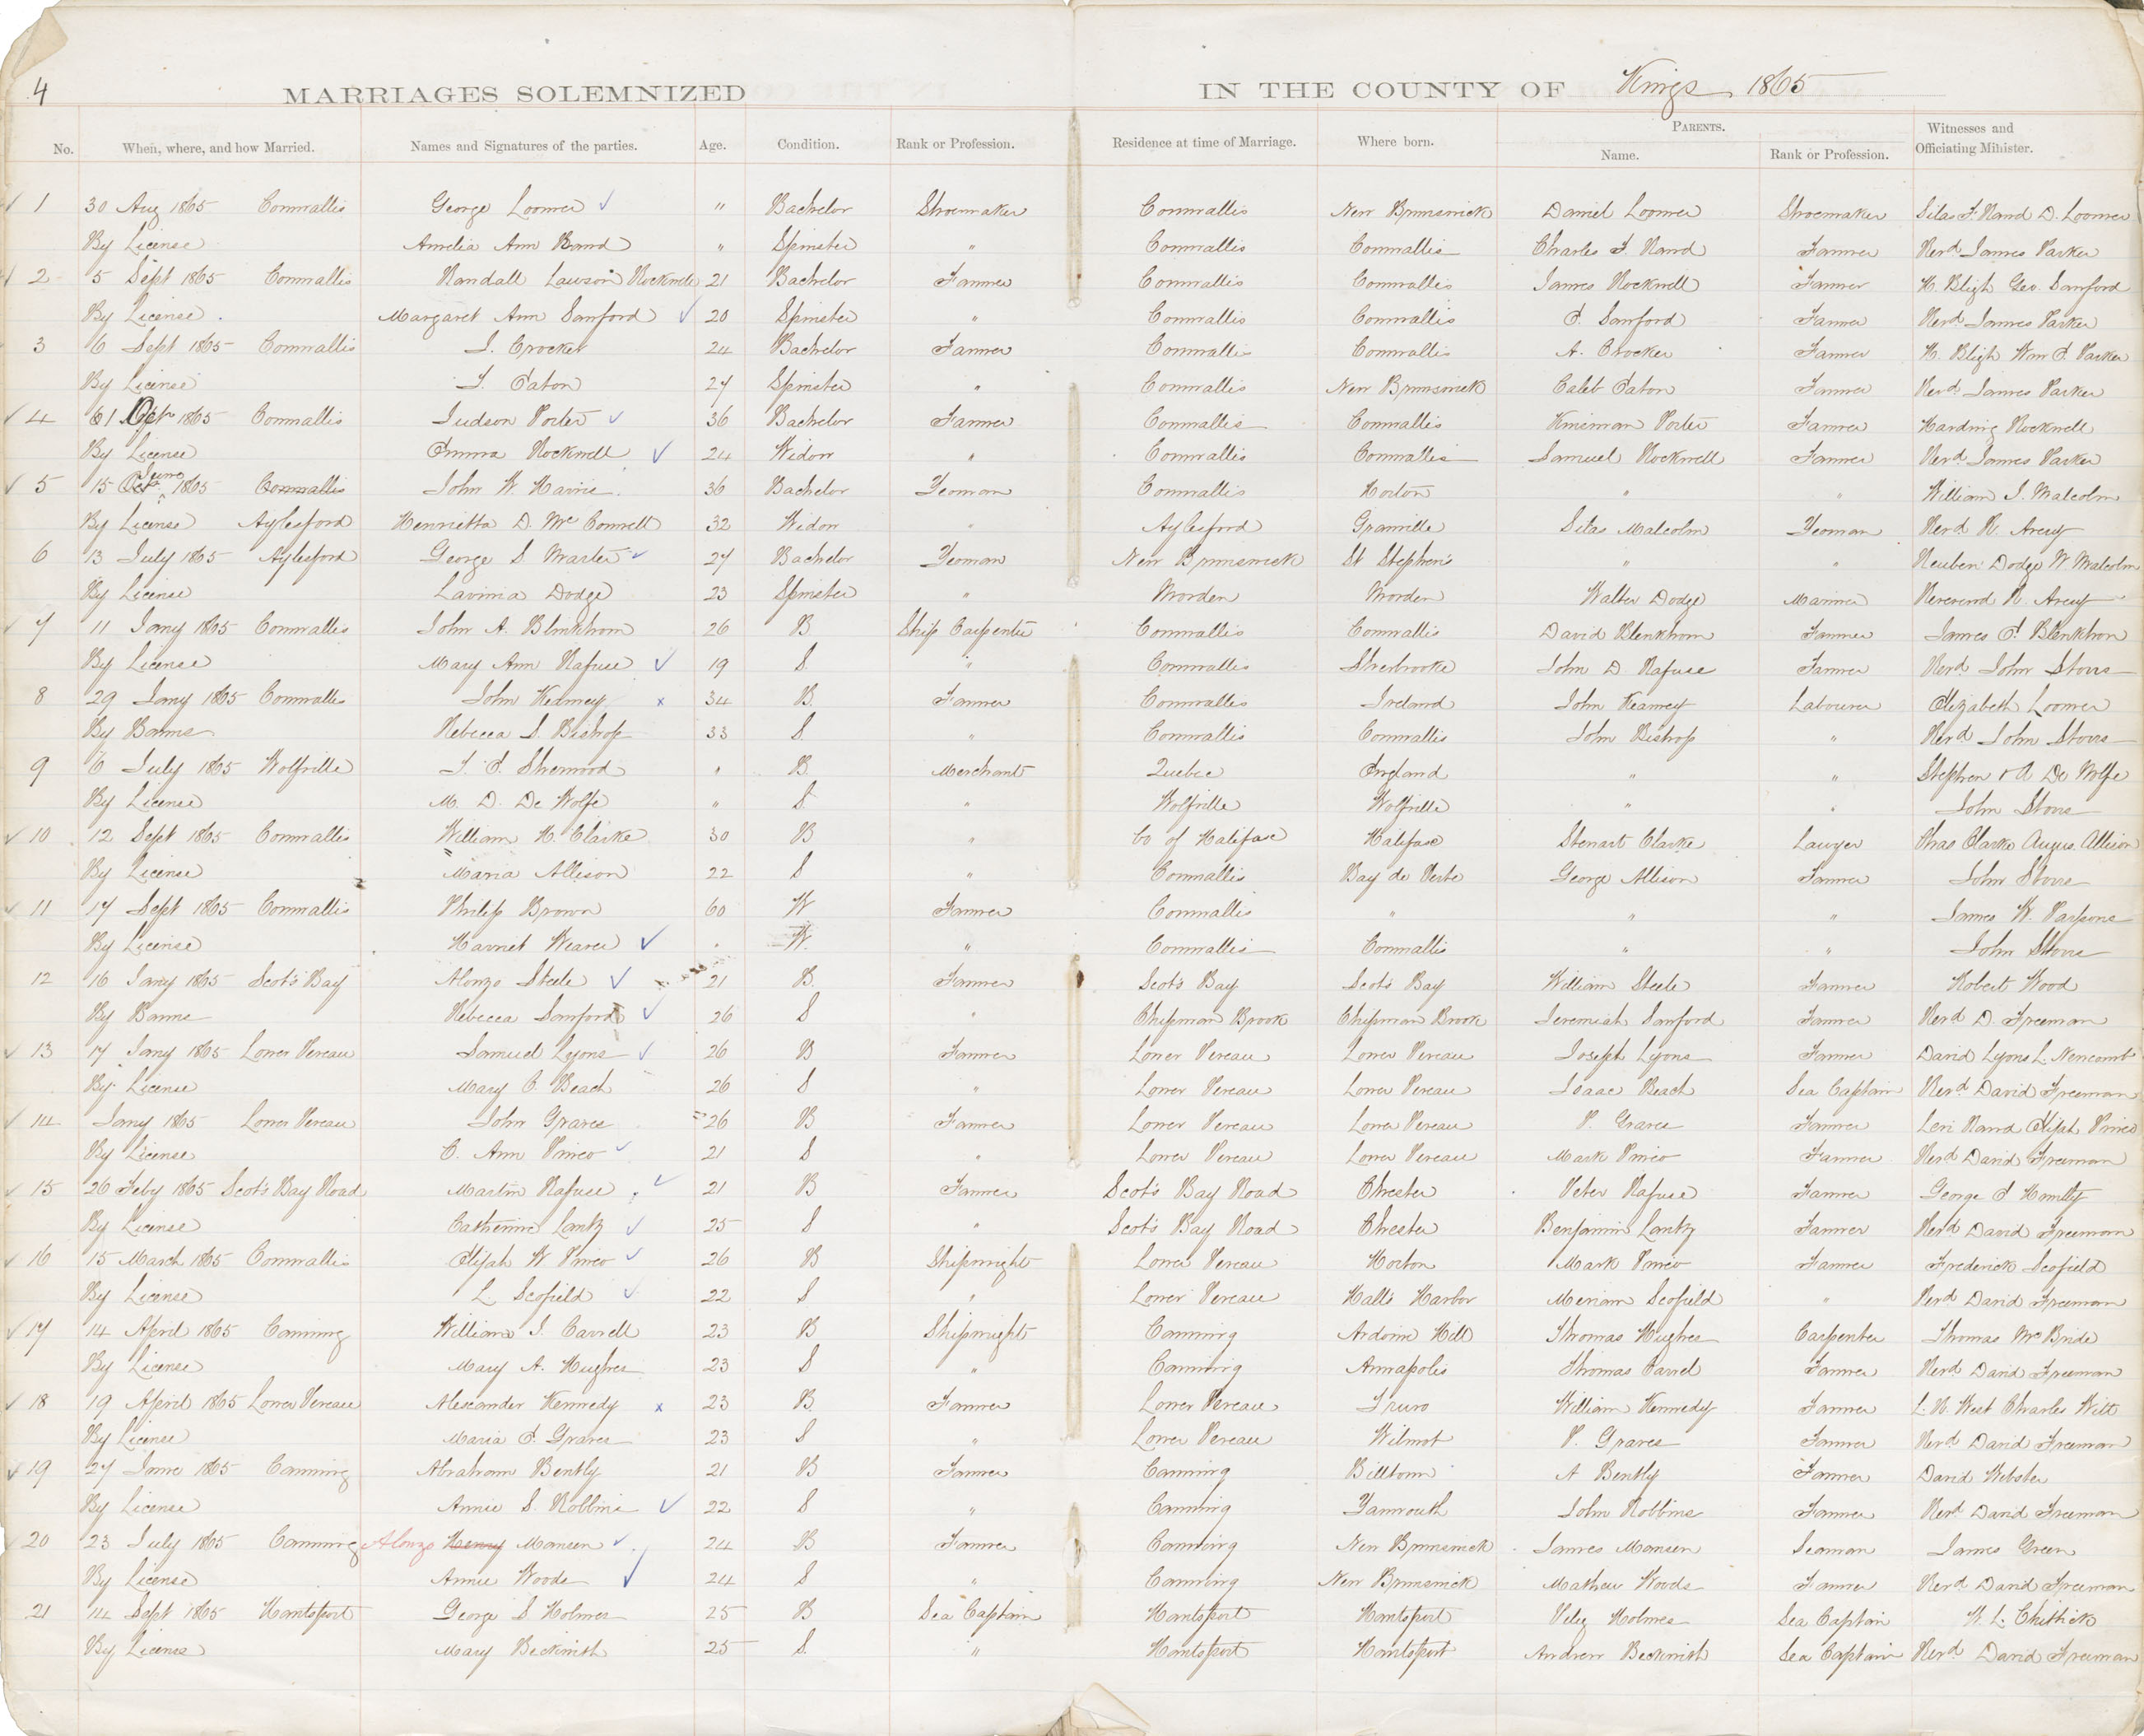 4
MARRIAGES SOLEMNIZED IN THE COUNTY OF Kings 1865
No. When, where, and how Married. Names and Signatures of the parties. Age. Condition. Rank or Profession. Residence at time of Marriage. Where born. PARENTS. Name. Rank or Profession. Witnesses and Officiating Minister.
1 30 Aug 1865 Cornwallis George Loomer " Bachelor Shoemaker Cornwallis New Brunswick Daniel Loomer Shoemaker Silas F. Rand D. Loomer
By License Amelia Ann Rand " Spinster " Cornwallis Cornwallis Charles F. Rand Farmer Revd James Parker
2 5 Sept 1865 Cornwallis Randall Lawson Rockwell 21 Bachelor Farmer Cornwallis Cornwallis James Rockwell Farmer H. Bligh Geo. Sanford
By License Margaret Ann Sanford 20 Spinster " Cornwallis Cornwallis E. Sanford Farmer Revd James Parker
3 6 Sept 1865 Cornwallis J. Crocker 24 Bachelor Farmer Cornwallis Cornwallis A. Crocker Farmer H. Bligh Wm E. Parker
By License J. Eaton 27 Spinster " Cornwallis New Brunswick Caleb Eaton Farmer Revd James Parker
4 Oct 1865 Cornwallis Judson Porter 36 Bachelor Farmer Cornwallis Cornwallis Kinsman Porter Farmer Harding Rockwell
By License Emma Rockwell 24 Widow " Cornwallis Cornwallis Samuel Rockwell Farmer Revd James Parker
5 15 Oct June 1865 Cornwallis John W. Harris 36 Bachelor Yeoman Cornwallis Horton " " William J. Malcolm
By License Aylesford Henrietta D. McConnell 32 Widow " Aylesford Granville Silas Malcolm Yeoman Revd R. Avery
6 13 July 1865 Aylesford George S Marter 27 Bachelor Yeoman New Brunswick St Stephen's " " Reuben Dodge W Malcolm
By License Lavinia Dodge 23 Spinster " Morden Morden Walter Dodge Mariner Reverend R. Avery
7 11 Jany 1865 Cornwallis John A. Blinkhorn 26 B Ship Carpenter Cornwallis Cornwallis David Blenkhorn Farmer James E Blenkhorn
By License Mary Ann Rafuse 19 S. " Cornwallis Sherbrooke John D. Rafuse Farmer Revd John Storrs
8 29 Jany 1865 Cornwallis John Kearney 34 B. Farmer Cornwallis Ireland John Kearney Labourer Elizabeth Loomer
By Banns Rebecca S. Bishop 33 S " Cornwallis Cornwallis John Bishop " Revd John Storrs
9 6 July 1865 Wolfville J. E. Sherwood " B. Merchant Quebec England " " Stephen & A De Wolfe
By License M. D. De Wolfe " S " Wolfville Wolfville " " John Storrs
10 12 Sept 1865 Cornwallis William H. Clarke 30 B " Co of Halifax Halifax Stewart Clarke Lawyer Chas Clarke Augus. Allison
By License Maria Allison 22 S " Cornwallis Bay de Verte George Allison Farmer John Storrs
11 17 Sept 1865 Cornwallis Philip Brown 60 W Farmer Cornwallis " " " James W. Parsons
By License Harriet Weaver " W. " Cornwallis Cornwallis " " John Storrs
12 16 Jany 1865 Scot's Bay Alonzo Steele 21 B. Farmer Scot's Bay Scot's Bay William Steele Farmer Robert Wood
By Banns Rebecca Sanford 26 S " Chipman Brook Chipman Brook Jeremiah Sanford Farmer Revd D. Freeman
13 17 Jany 1865 Lower Pereau Samuel Lyons 26 B Farmer Lower Pereau Lower Pereau Joseph Lyons Farmer David Lyons L. Newcomb
By License Mary C. Beach 26 S " Lower Pereau Lower Pereau Isaac Beach Sea Captain Revd David Freeman
14 Jany 1865 Lower Pereau John Graves 26 B Farmer Lower Pereau Lower Pereau P. Graves Farmer Levi Rand Elijah Pineo
By License C. Ann Pineo 21 S " Lower Pereau Lower Pereau Mark Pineo Farmer Revd David Freeman
15 26 Feby 1865 Scot's Bay Road Martin Rafuse 21 B Farmer Scot's Bay Road Chester Peter Rafuse Farmer George E
By License Catherine Lantz 25 S " Scot's Bay Road Chester Benjamin Lantz Farmer Revd David Freeman
16 15 March 1865 Cornwallis Elijah W Pineo 26 B Shipwright Lower Pereau Horton Mark Pineo Farmer Frederick Scofield
By License L. Scofield 22 S " Lower Pereau Hall's Harbor Miriam Scofield " Revd David Freeman
17 14 April 1865 Canning William J. Carrell 23 B Shipwright Canning Ardoise Hill Thomas Hughes Carpenter Thomas McBride
By License Mary A. Hughes 23 S " Canning Annapolis Thomas Carrel Farmer Revd David Freeman
18 19 April 1865 Lower Pereau Alexander Kennedy 23 B Farmer Lower Pereau Truro William Kennedy Farmer L. N. West Charles Witt
By License Maria E. Graves 23 S " Lower Pereau Wilmot P. Graves Farmer Revd David Freeman
19 27 June 1865 Canning Abraham Bently 21 B Farmer Canning Billtown A Bently Farmer David Webster
By License Annie S. Robbins 22 S " Canning Yarmouth John Robbins Farmer Revd David Freeman
20 23 July 1865 Canning Alonzo Henry Mansen 24 B Farmer Canning New Brunswick James Mansen Seaman James Green
By License Annie Woods 24 S " Canning New Brunswick Mathew Woods Farmer Revd David Freeman
21 14 Sept 1865 Hantsport George S Holmes 25 B Sea Captain Hantsport Hantsport Peleg Holmes Sea Captain W. L. Chittick
By License Mary Beckwith 25 S. " Hantsport Hantsport Andrew Beckwith Sea Captain Revd David Freeman